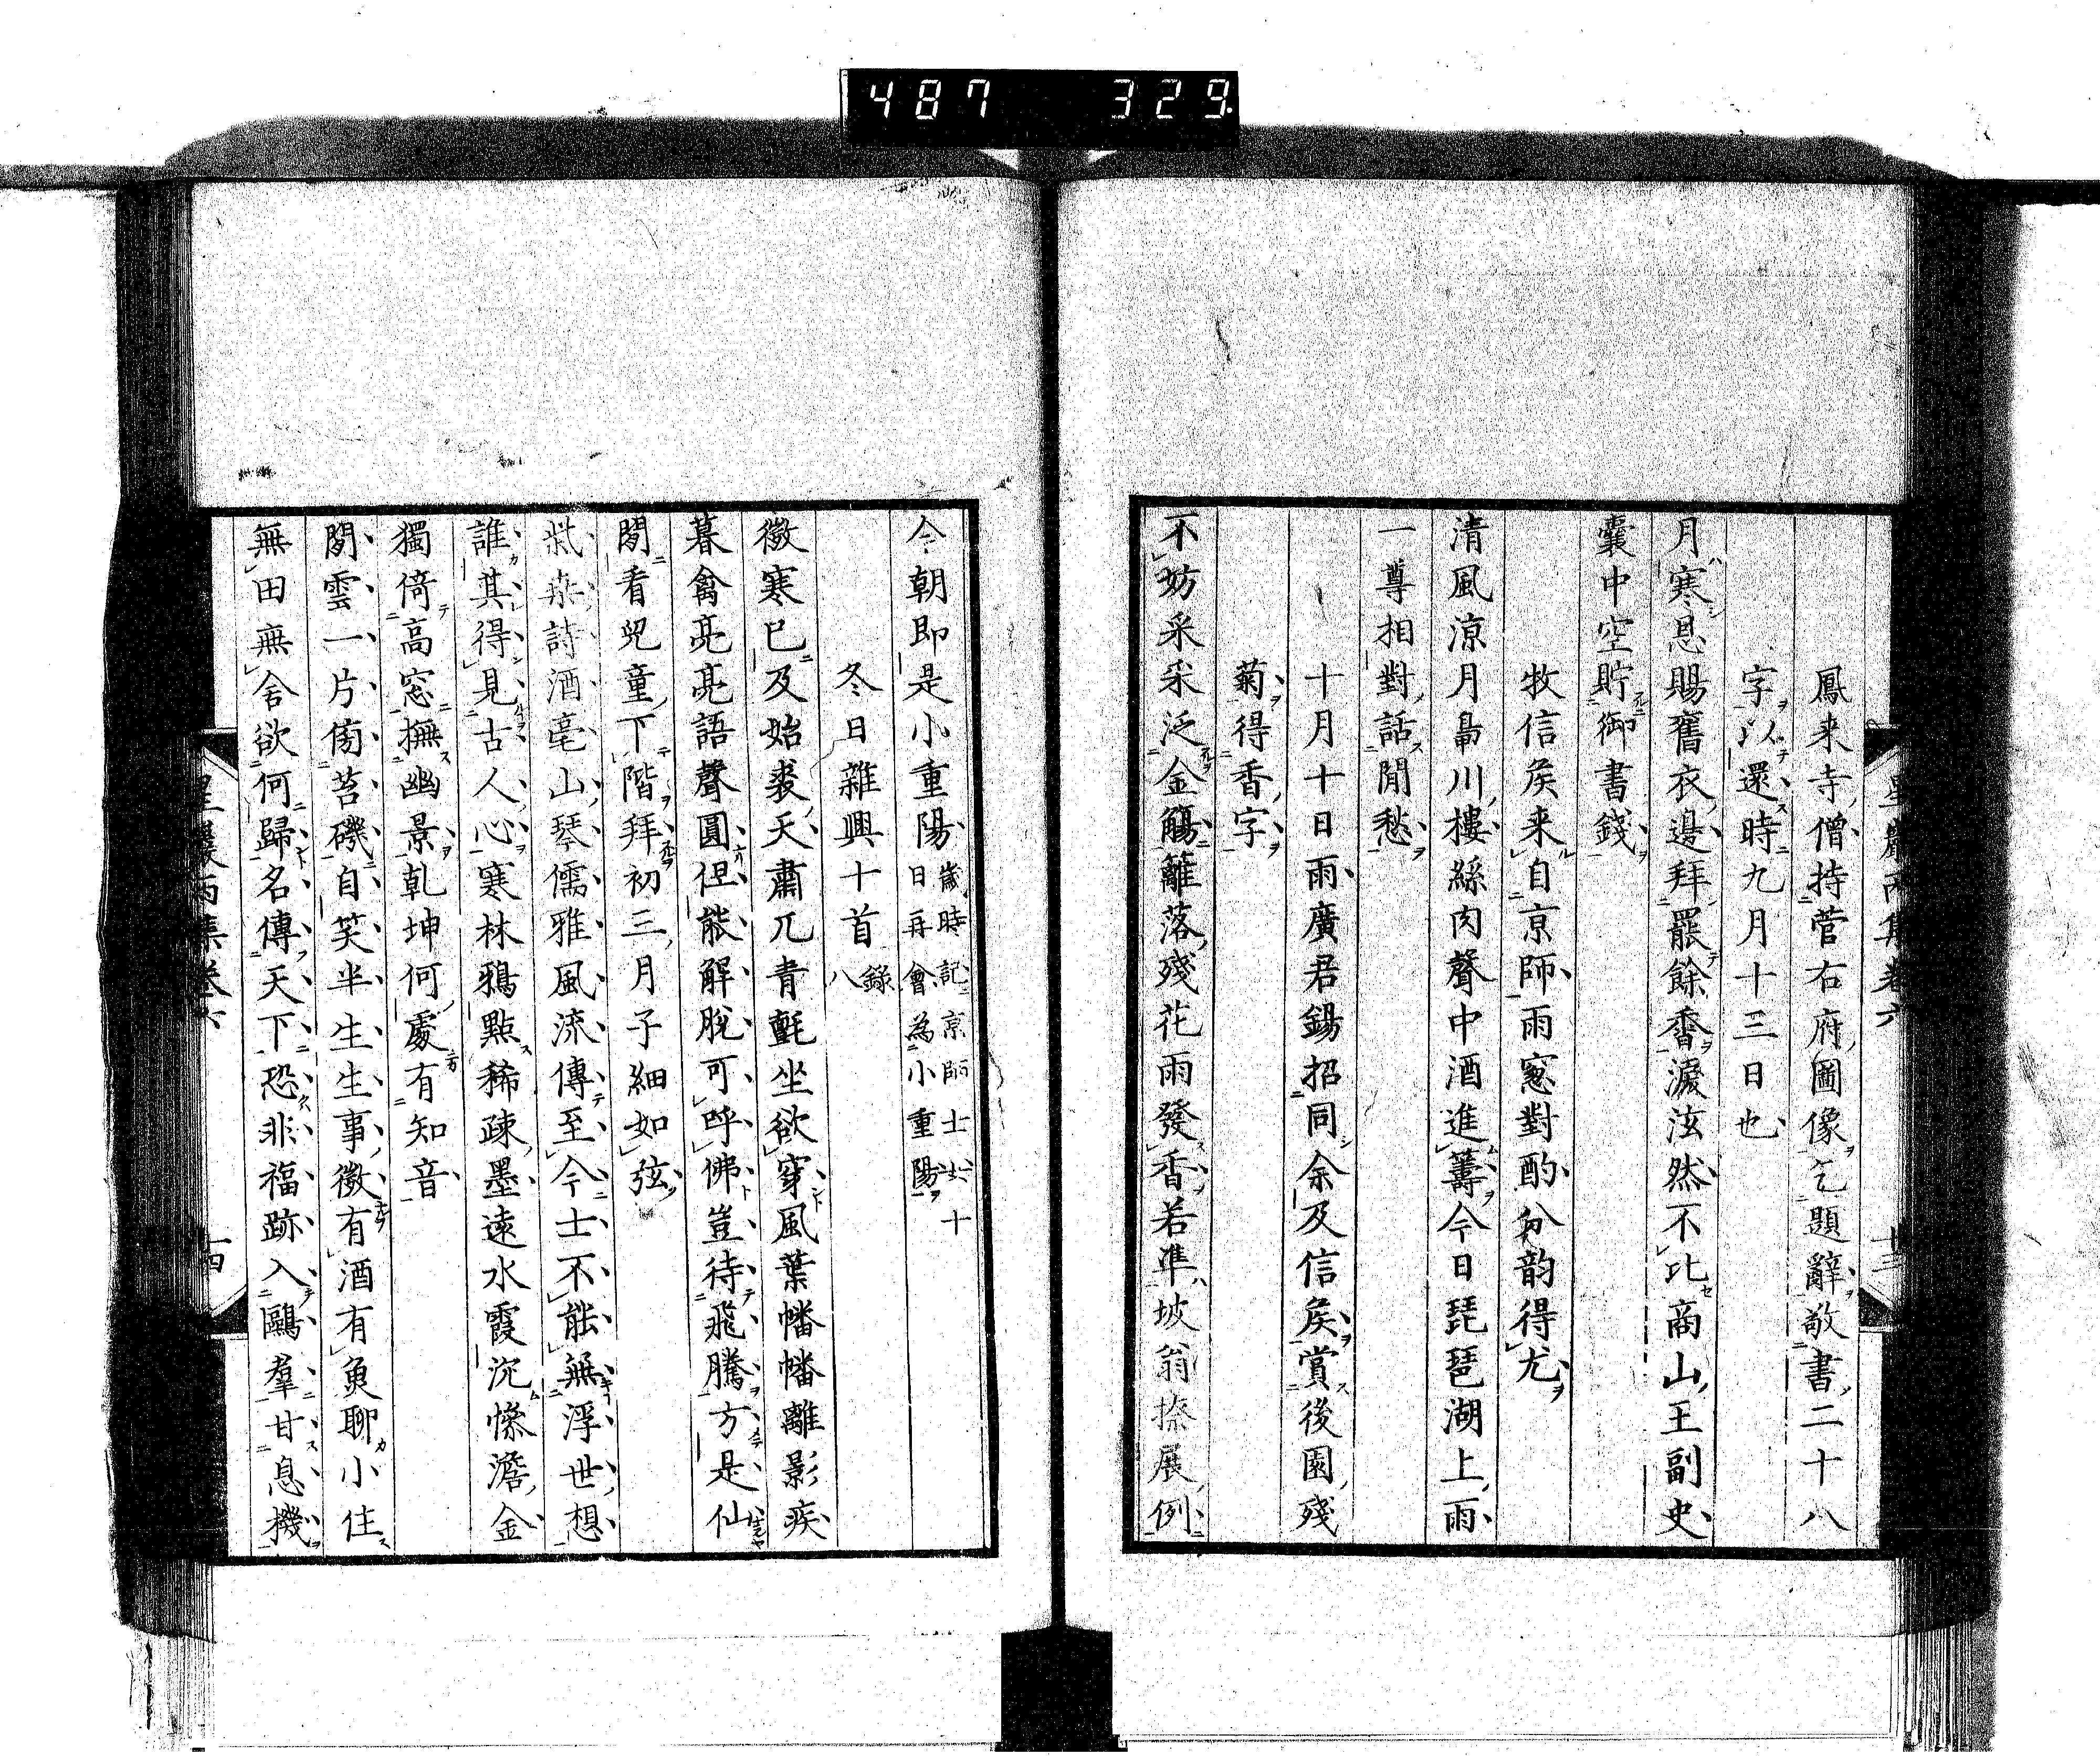 487 329
星巖丙集卷六 十三
鳳来寺僧持菅右府圖像乞題辭敬書二十八
字以還時九月十三日也
月寒恩賜舊衣邊拜罷餘香淚泫然不比商山王副史
囊中空貯御書錢
牧信矦来自京師雨窓對酌分韵得尤
清風涼月鼎川樓絲肉聲中酒進籌今日琵琶湖上雨
一尊相對話閒愁
十月十日雨廣君錫招同余及信矦賞後園殘
菊得香字
不妨采采泛金觴籬落殘花雨發香若準坡翁捺展例
今朝即是小重陽歳時記京師士女十日再會為小重陽
冬日雜興十首錄八
微寒已及始裘天肅兀青氈坐欲穿風葉幡幡離影疾
暮禽亮亮語聲圓但能解脱可呼佛豈待飛騰方是仙
閒看兒童下階拜初三月子細如弦
詩酒亳山琴儒雅風流傳至今士不能無浮世想
誰其得見古人心寒林鴉點稀疎墨遠水霞沉慘澹金
獨倚高窓撫幽景乾坤何處有知音
閒雲一片傍苔磯自笑半生生事微有酒有魚聊小住
無田無舍欲何歸名傳天下恐非福跡入鷗羣甘息機
星巖丙集卷六 十四